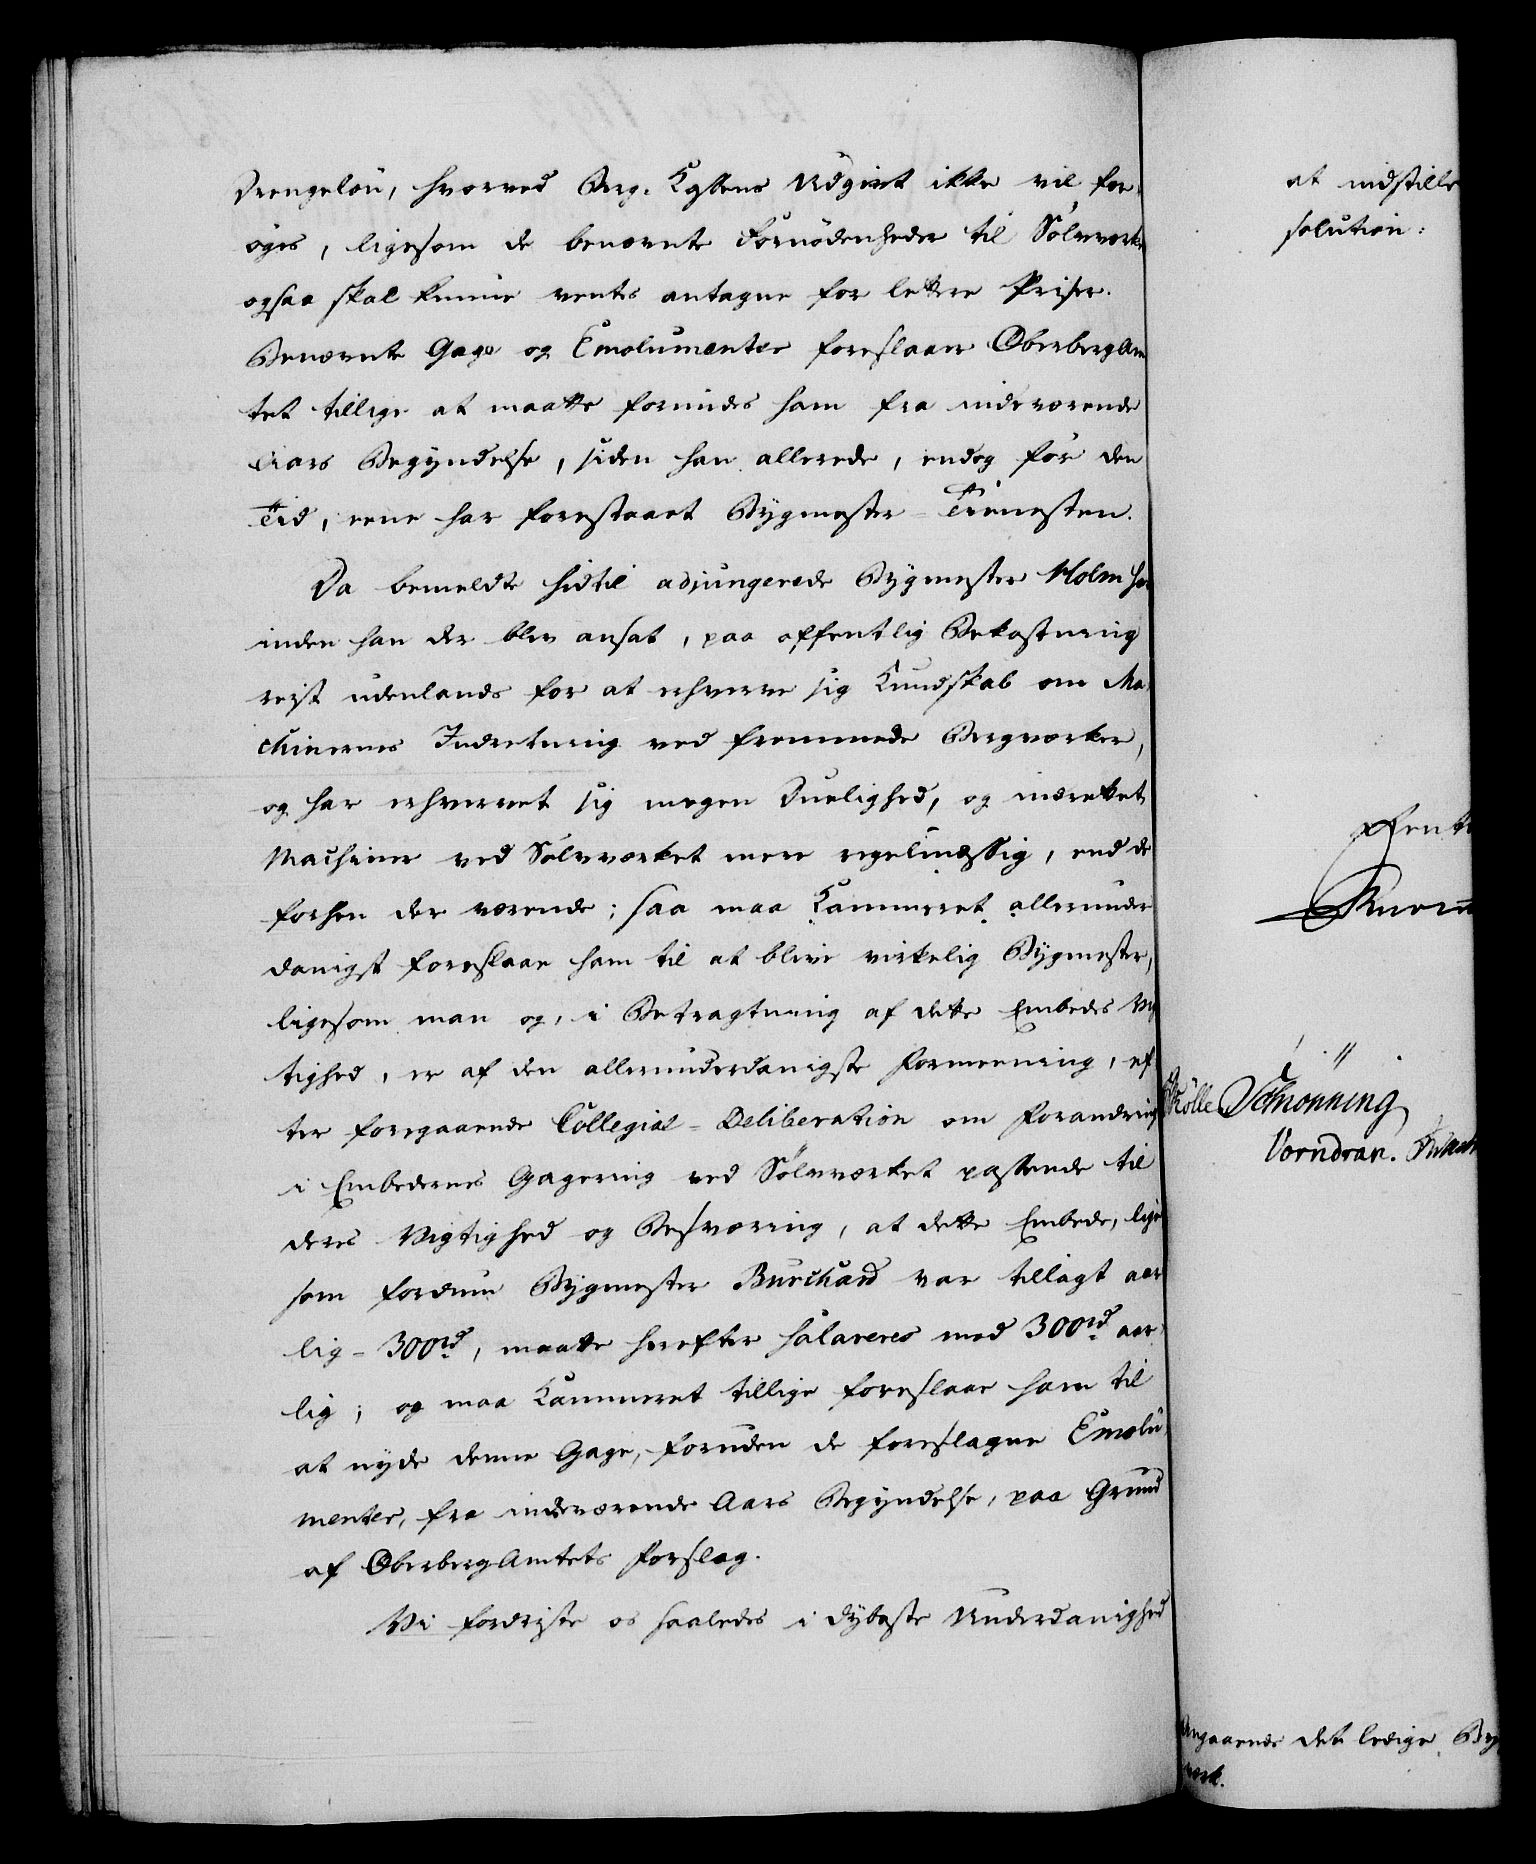 Drengeløn, hvorved Berg-Casens Udgivt ikke vil for-
øges, ligesom de benævnte Fornødenheder til Sølvværket
ogsaa skal kunne ventes antagne for lettere Priser.
Benævnte Gage og Emolumenter foreslaaer OberbergAm-
tet tillige at maatte forundes ham fra indeværende
Aars Begyndelse, siden han allerede, endog før den
Tid, ene har forestaaet Bygmester-Tienesten.
Da bemeldte hidtil adjungerede Bygmester Holm har
inden han der blev ansat, paa offentlig Bekostning
reist udenlands for at erhverve sig Kundskab om Ma-
chinernes Indretning ved fremmede Bergværker,
og har erhvervet sig megen Duelighed, og indrettet
Machiner ved Sølvværket mere regelmæssig, end de
forhen der værende; saa maa Kammeret allerunder-
danigst foreslaae ham til at blive virkelig Bygmester,
ligesom man og, i Betragtning af dette Embedes Vig-
tighed, er af den allerunderdanigste Formeening, ef-
ter foregaaende Collegial-Deliberation om Forandring
i Embedernes Gagering ved Sølvværket passende til
deres Vigtighed og Besværing, at dette Embede, lige-
som fordum Bygmester Burchard var tillagt aar-
lig - 300rd, maatte herefter salareres med 300rd aar-
lig; og maa Kammeret tillige foreslaae ham til
at nyde denne Gage, foruden de foreslagne Emolu-
menter, fra indeværende Aars Begyndelse, paa Grund
af OberbergAmtets Forslag.
Vi fordriste os saaledes i dybeste Underdanighed
at indstille
solution:
Schønning
Vorndran.
det ledige